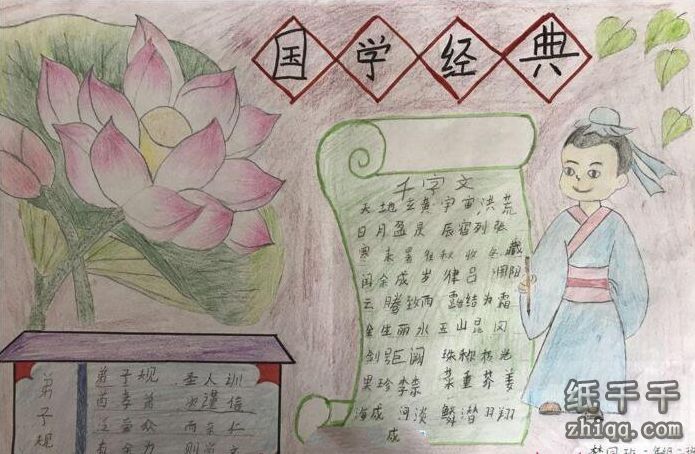 国学经典
千字文
天地玄黄宇宙洪荒
日月盈昃 辰宿列张
寒来暑往秋收冬藏
闰余成岁 律吕调阳
云腾致雨 露结为霜
金生丽水玉山昆冈
剑巨阙 珠称夜光
果珍李柰 菜重芥姜
海咸 河淡 鳞潜羽翔
咸
弟子规
弟子规 圣人训
首孝弟 次谨信
泛爱众 而亲仁
有余力 则学文
纸千千
zhiqq.com